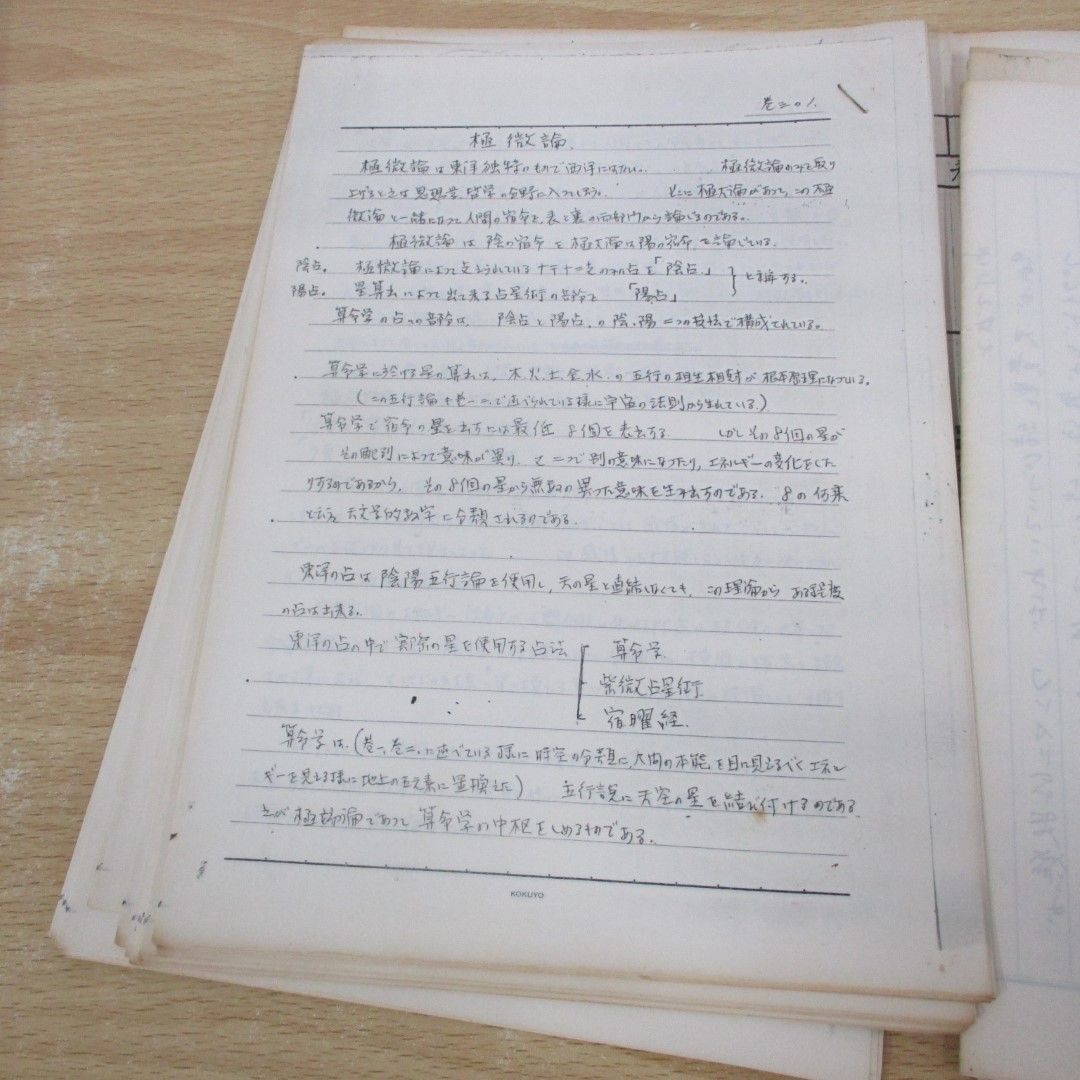 巻三.01.
極微論、
極微論は東洋独特のもので西洋にはない。 極微論のみを取り
上げるときは思想学、哲学の分野に入ってしまう。 そこに極大論があって、この極
微論と一緒になって人間の宿命を、表と裏の両部門から論じるのである。
極微論は陰の宿命を極大論は陽の宿命を論じている。
陰占。 極微論によって支えられている十干十二支のみの占を「陰占」
陽占。 星算出によって出て来る占星術の部分を 「陽占」 } と称する。
算命学の占の部分は、 陰占と陽占、の陰、陽二つの技法で構成されている。
算命学に於ける星の算出は、木、火、土、金、水、の五行の相生相剋が根本原理になっている。
(この五行論も巻一、二、で述べられている様に宇宙の法則から生れている。)
算命学で宿命の星を出すには最低 8個を表出する。 しかしその8個の星が
その配列によって意味が異り、 二つで別の意味になったり、エネルギーの変化をした
りするのであるから、 その8個の星から無数の異った意味を生み出すのである。 8の何乗
と云う天文学的数字に分類されるのである。
東洋の占は陰陽五行論を使用し、天の星と直結しなくても、この理論からある程度
の占は出来る。
東洋の占の中で実際の星を使用する占法 算命学
紫微占星術
宿曜経.
算命学は、(巻一、巻二、に述べている様に時空の分類に、人間の本能を目に見えるべくエネル
ギーを見える様に地上の五元素に置換えた) 五行説に天空の星を結び付けるのである。
これが極微論であって算命学の中枢をしめるものである。
KOKUYO